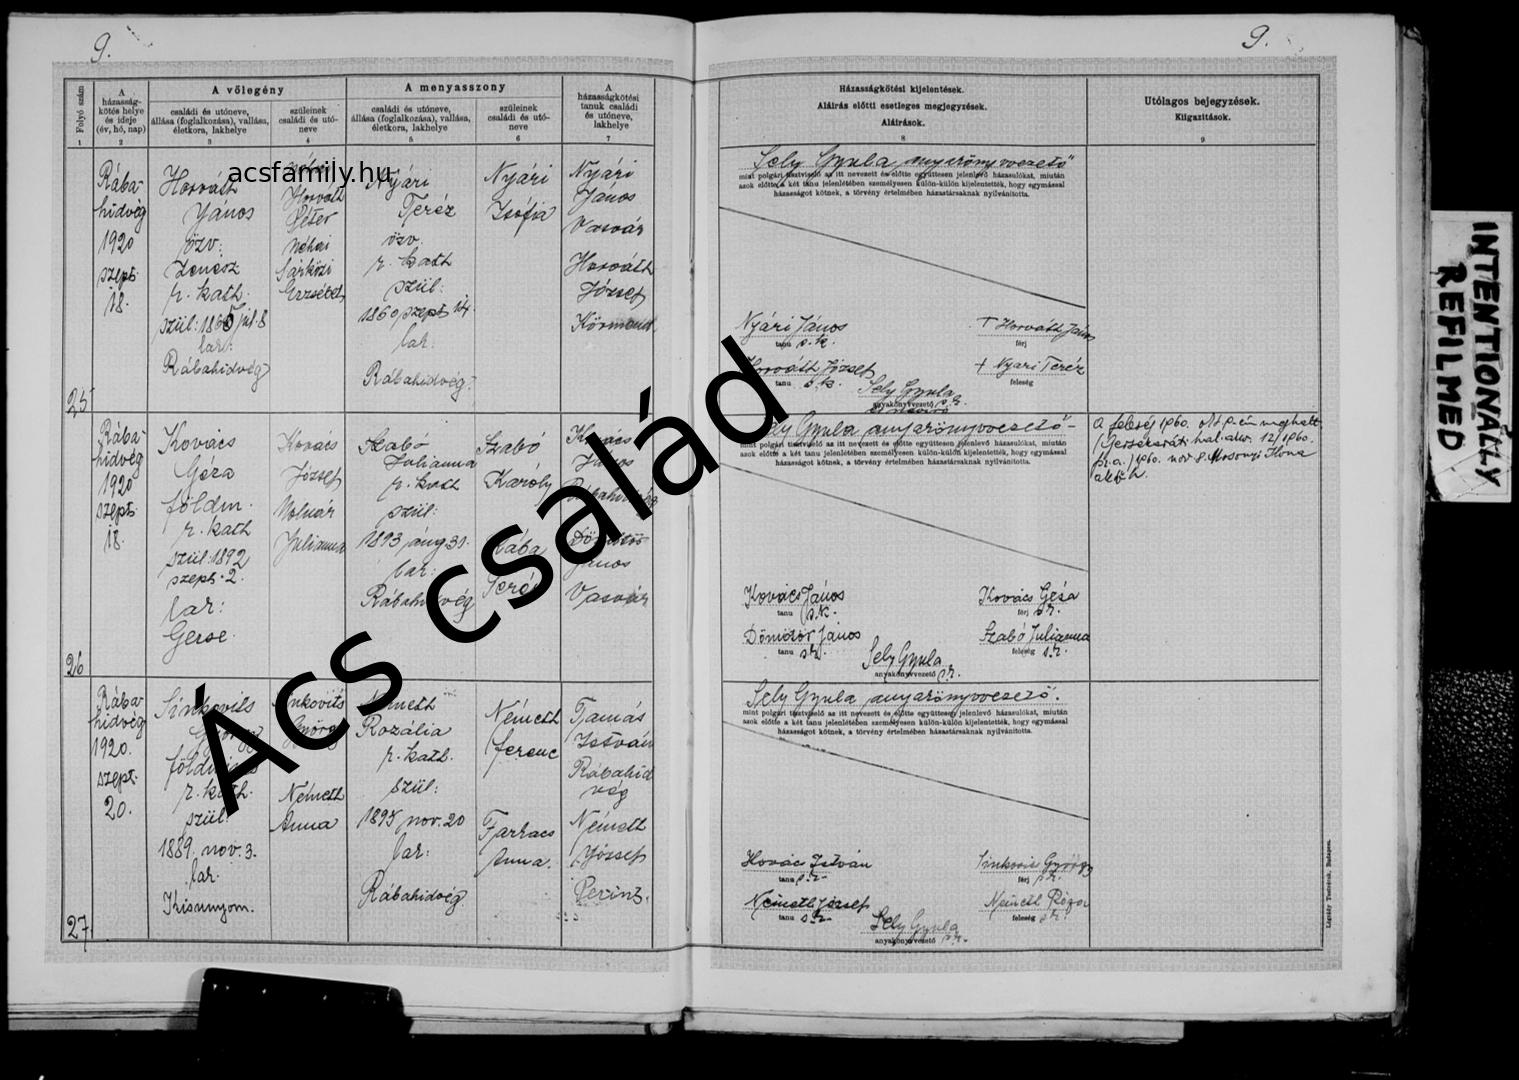 9.
9.
Folyó szám
A
házasság-
kötés helye
és ideje
(év, hó, nap)
A vőlegény
családi és utóneve,
állása (foglalkozása), vallása,
életkora, lakhelye
szüleinek
családi és utó-
neve
A menyasszony
családi és utóneve,
állása (foglalkozása), vallása,
életkora, lakhelye
szüleinek
családi és utó-
neve
A
házasságkötési
tanuk családi
és utóneve,
lakhelye
Házasságkötési kijelentések.
Aláírás előtti esetleges megjegyzések.
Aláírások.
Utólagos bejegyzések.
Kiigazítások.
1
2
3
4
5
6
7
8
9
25
Rába-
hidvég
1920
szept.
18.
Horváth
János
özv.
zenész
r. kath.
szül: 1865 júl. 8
lak:
Rábahidvég
Horváth
Péter
néhai
Sárközi
Erzsébet
Nyári
Teréz
özv.
r. kath
szül:
1860 szept 14.
lak:
Rábahidvég.
Nyári
Zsófia
Nyári
János
Vasvár
Horváth
József
Körmend
Sely Gyula anyakönyvvezető
mint polgári tisztviselő az itt nevezett és előtte együttesen jelenlevő házasulókat, miután
azok előtte a két tanu jelenlétében személyesen külön-külön kijelentették, hogy egymással
házasságot kötnek, a törvény értelmében házastársaknak nyilvánította.
Nyári János
tanu s. k.
+ Horváth János
férj
Horváth József
tanu s. k.
+ Nyári Teréz
feleség
Sely Gyula
anyakönyvvezető s. k.
26
Rába-
hidvég
1920
szept.
18.
Kovács
Géza
földm.
r. kath
szül: 1892
szept. 2.
lak:
Gerse.
Kovács
József
Molnár
Julianna
Szabó
Julianna
r. kath
szül:
1893 aug 31.
lak:
Rábahidvég
Szabó
Károly
Rába
Teréz
Kovács
János
Rábahidvég
Dömötör
János
Vasvár
Sely Gyula anyakönyvvezető
mint polgári tisztviselő az itt nevezett és előtte együttesen jelenlevő házasulókat, miután
azok előtte a két tanu jelenlétében személyesen külön-külön kijelentették, hogy egymással
házasságot kötnek, a törvény értelmében házastársaknak nyilvánította.
Kovács János
tanu s. k.
Kovács Géza
férj s. k.
Dömötör János
tanu s. k.
Szabó Julianna
feleség s. k.
Sely Gyula
anyakönyvvezető s. k.
A feleség 1960. meghalt
hal. akv. 12/1960.
1960. nov 8. Mosonyi Ilona
27.
Rába-
hidvég
1920.
szept.
20.
Sinkovits
György
földműves
r. kath.
szül.
1889. nov. 3.
lak.
Kisunyom.
Sinkovits
György
Németh
Anna
Németh
Rozália
r. kath.
szül:
1895 nov. 20
lak:
Rábahidvég
Németh
Ferenc
Farkacs
Anna.
Tamás
István
Rábahid
vég
Németh
József
Perint.
Sely Gyula anyakönyvvezető.
mint polgári tisztviselő az itt nevezett és előtte együttesen jelenlevő házasulókat, miután
azok előtte a két tanu jelenlétében személyesen külön-külön kijelentették, hogy egymással
házasságot kötnek, a törvény értelmében házastársaknak nyilvánította.
István
tanu s. k.
Sinkovics György
férj s. k.
Németh József
tanu s. k.
Németh Róza
feleség s. k.
Sely Gyula
anyakönyvvezető s. k.
Légrády Testvérek, Budapest.
INTENTIONALLY
REFILMED
acsfamily.hu
Ács család